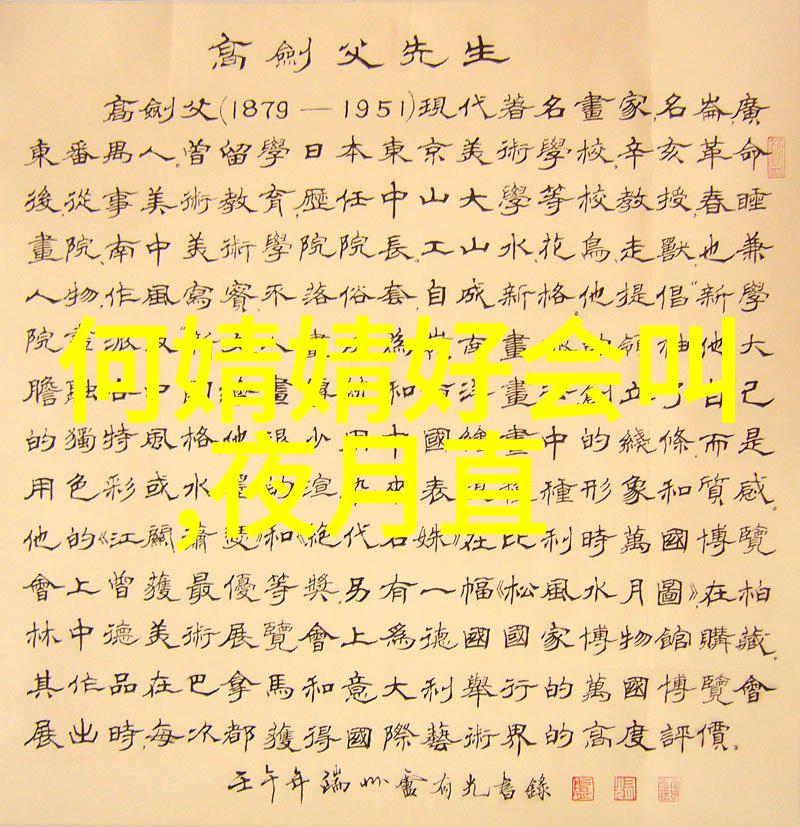 高劍父先生
高劍父(1879—1951)現代著名畫家,名崙,廣
東番禺人。曾留學日本東京美術學校,辛亥革命
後,從事美術教育,歷任中山大學等校教授,春睡
畫院、南中美術學院院長。工山水、花鳥、走獸,也兼
人物,作風寫實,不落俗套,自成新格。他提倡"新學
院畫派 為 南畫 的領袖。他大
膽融 中 畫 和 洋畫 創立了自己
的獨特風格。他很少用中國繪畫中的綫條,而是
用色彩或水墨的渲染來表現種種形象和質感。
他的《江關蕭瑟》和《絕代名姝》在比利時萬國博覽
會上曾獲最優等獎。另有一幅《松風水月圖》,在柏
林中德美術展覽會上為德國國家博物館購藏。
其作品在巴拿馬和意大利舉行的萬國博覽會
展出時,每次都獲得國際藝術界的高度評價。
壬午年端州盧有光書錄
何婧婧好会叫
,夜月直